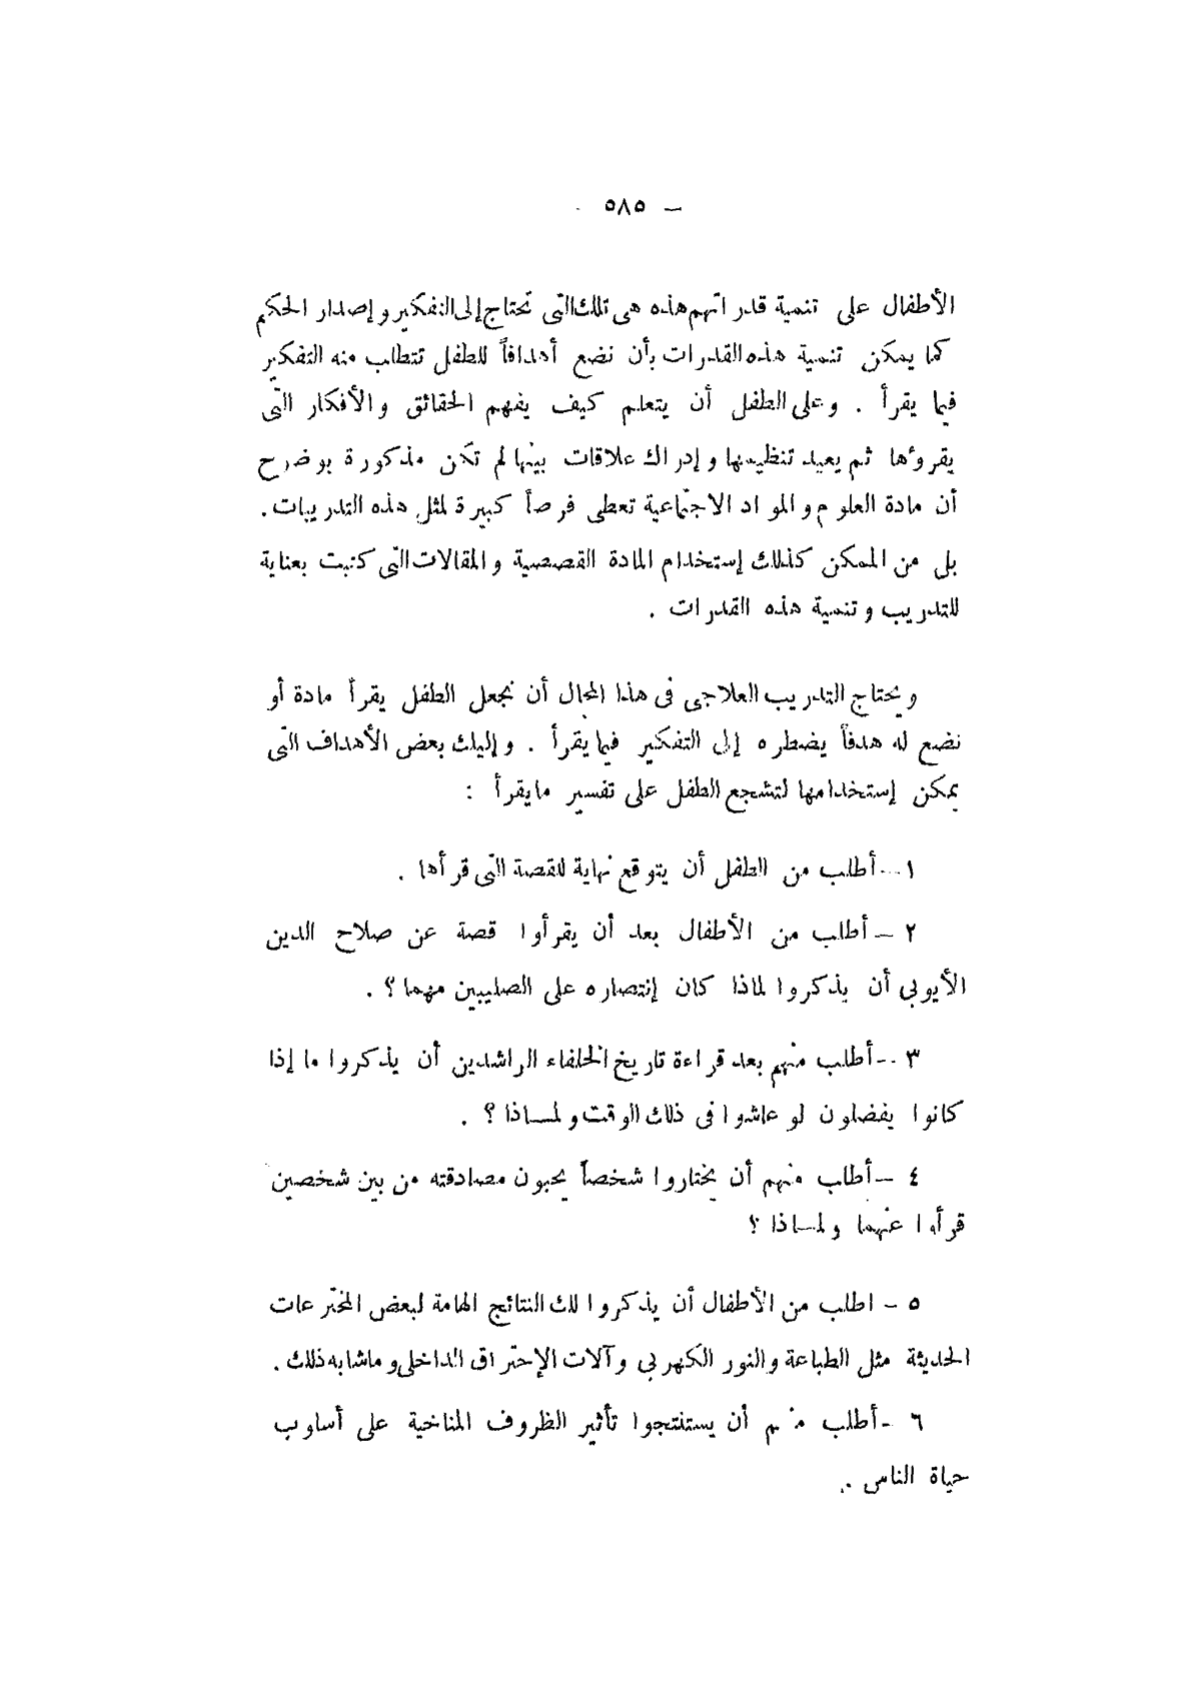 – ٥٨٥ -
الأطفال على تنمية قدراتهم هذه هى تلك التى تحتاج إلى التفكير وإصدار الحكم
كما يمكن تنمية هذه القدرات بأن نضع أهدافاً للطفل تتطلب منه التفكير
فيما يقرأ . وعلى الطفل أن يتعلم كيف يفهم الحقائق والأفكار التى
يقرؤها ثم يعيد تنظيمها وإدراك علاقات بينها لم تكن مذكورة بوضوح
أن مادة العلوم والمواد الاجتماعية تعطى فرصاً كبيرة لمثل هذه التدريبات .
بل من الممكن كذلك إستخدام المادة القصصية والمقالات التى كتبت بعناية
للتدريب وتنمية هذه القدرات .
ويحتاج التدريب العلاجى فى هذا المجال أن نجعل الطفل يقرأ مادة أو
نضع له هدفاً يضطره إلى التفكير فيما يقرأ . وإليك بعض الأهداف التى
يمكن إستخدامها لتشجع الطفل على تفسير مايقرأ :
١ – أطلب من الطفل أن يتوقع نهاية للقصة التى قرأها .
٢ – أطلب من الأطفال بعد أن يقرأوا قصة عن صلاح الدين
الأيوبى أن يذكروا لماذا كان إنتصاره على الصليبين مهما ؟ .
٣ – أطلب منهم بعد قراءة تاريخ الخلفاء الراشدين أن يذكروا ما إذا
كانوا يفضلون لو عاشوا فى ذلك الوقت ولمــاذا ؟ .
٤ – أطلب منهم أن يختاروا شخصاً يحبون مصادقته من بين شخصين
قرأوا عنهما ولمــاذا ؟
٥ – اطلب من الأطفال أن يذكروا لك النتائج الهامة لبعض المخترعات
الحديثة مثل الطباعة والنور الكهربى وآلات الإحتراق الداخلى وماشابه ذلك .
٦ – أطلب منهم أن يستنتجوا تأثير الظروف المناخية على أسلوب
حياة الناس .